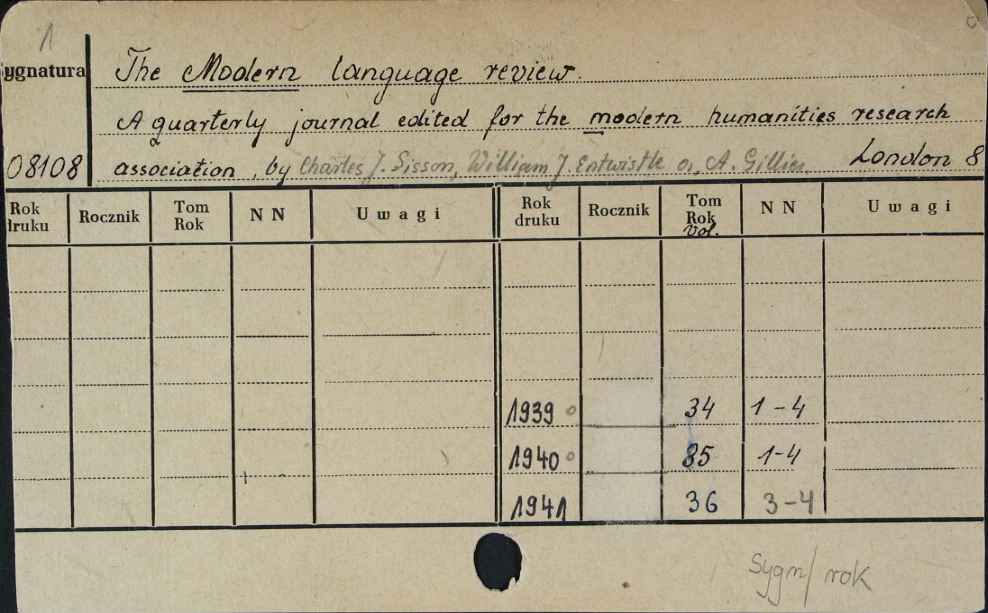 1
ygnatura The Modern language review.
A quarterly journal edited for the modern humanities research
08108 association, by Charles J. Sisson, William J. Entwistle A. Gillies London 8
Rok druku Rocznik Tom Rok N N Uwagi Rok druku Rocznik Tom Rok Vol. N N Uwagi
1939 34 1-4
1940 35 1-4
1941 36 3-4
Sygn/rok